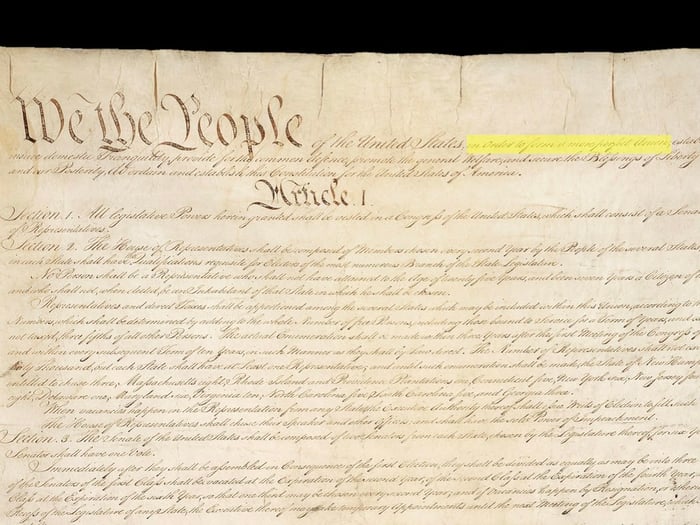 We the People of the United States, in Order to form a more perfect Union, estab
insure domestic Tranquility, provide for the common defence, promote the general Welfare, and secure the Blessings of Liberty
and our Posterity, do ordain and establish this Constitution for the United States of America.
Article. I.
Section. 1. All legislative Powers herein granted shall be vested in a Congress of the United States, which shall consist of a Sena
of Representatives.
Section. 2. The House of Representatives shall be composed of Members chosen every second Year by the People of the several States
in each State shall have the Qualifications requisite for Electors of the most numerous Branch of the State Legislature.
No Person shall be a Representative who shall not have attained to the Age of twenty five Years, and been seven Years a Citizen of
and who shall not, when elected, be an Inhabitant of that State in which he shall be chosen.
Representatives and direct Taxes shall be apportioned among the several States which may be included within this Union, according to
Numbers, which shall be determined by adding to the whole Number of free Persons, including those bound to Service for a Term of Years, and
not taxed, three fifths of all other Persons. The actual Enumeration shall be made within three Years after the first Meeting of the Congress of
and within every subsequent Term of ten Years, in such Manner as they shall by Law direct. The Number of Representatives shall not
thirty Thousand, but each State shall have at Least one Representative; and until such enumeration shall be made, the State of New Hamp
entitled to chuse three, Massachusetts eight, Rhode Island and Providence Plantations one, Connecticut five, New York six, New Jersey four
eight, Delaware one, Maryland six, Virginia ten, North Carolina five, South Carolina five, and Georgia three.
When vacancies happen in the Representation from any State, the Executive Authority thereof shall issue Writs of Election to fill such
The House of Representatives shall chuse their Speaker and other Officers; and shall have the sole Power of Impeachment.
Section. 3. The Senate of the United States shall be composed of two Senators from each State, chosen by the Legislature thereof, for six Y
Senator shall have one Vote.
Immediately after they shall be assembled in Consequence of the first Election, they shall be divided as equally as may be into three
of the Senators of the first Class shall be vacated at the Expiration of the second Year, of the second Class at the Expiration of the fourth Year,
Class at the Expiration of the sixth Year, so that one third may be chosen every second Year; and if Vacancies happen by Resignation, or otherw
Recess of the Legislature of any State, the Executive thereof may make temporary Appointments until the next Meeting of the Legislature,